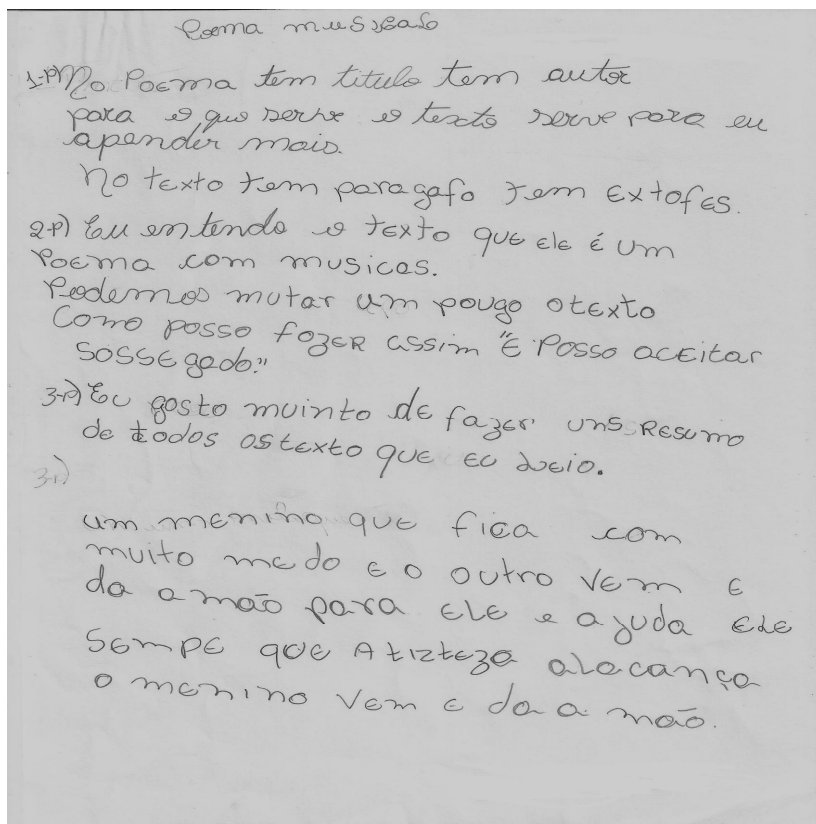 Poema musicado
1-P) No Poema tem titulo tem autor
para o que serve o texto serve para eu
apender mais.
No texto tem paragafo tem Extofes.
2-P) Eu entendo o texto que ele é um
Poema com musicas.
Podemos mutar um pougo otexto
Como posso fozer assim "E Posso aceitar
sossegado."
3-P) Eu gosto muinto de fazer uns Resumo
de todos ostexto que eu leio.
3-P)
um menino que fica com
muito medo e o outro vem e
da a mão para ele e ayuda ele
sempe que Atizteza alacança
o menino vem e da a mão.